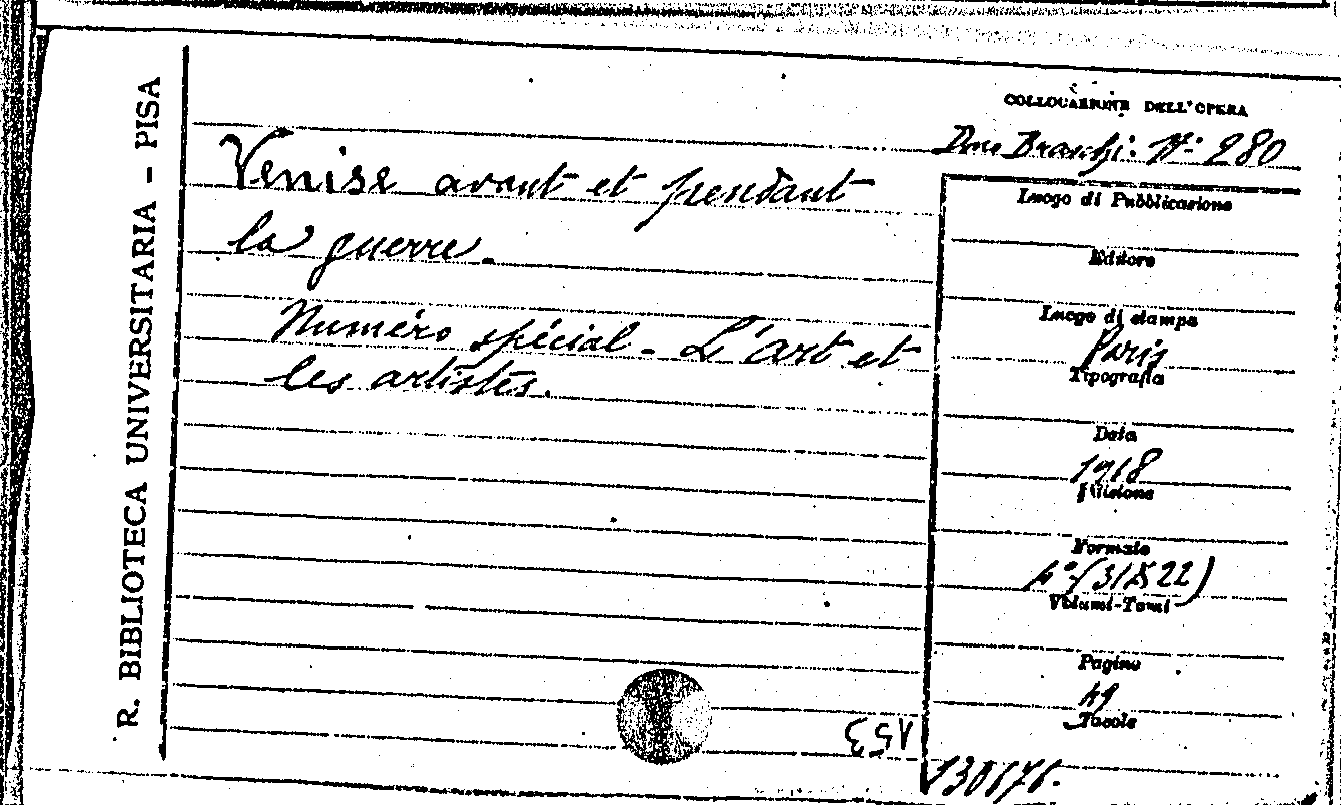 R. BIBLIOTECA UNIVERSITARIA - PISA
COLLOCAZIONE DELL'OPERA
Dono Braschi. N: 280
Venise avant et pendant
la guerre.
Numéro spécial - L'art et
les artistes.
Luogo di Pubblicazione
Editore
Luogo di stampa
Paris
Tipografia
Data
1918
Edizione
Formato
4° (31X22)
Volumi-Tomi
Pagine
49
Tavole
153